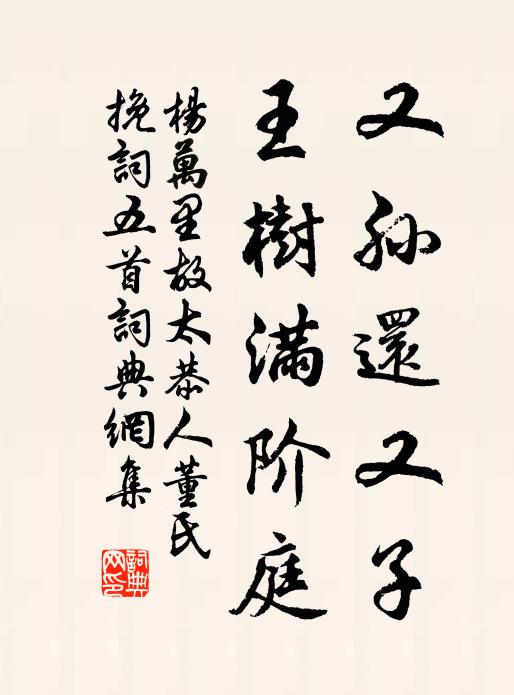 又孙還又子
玉樹满阶庭
楊萬里故太恭人董氏
挽詞五首詞典網集
詞典网印